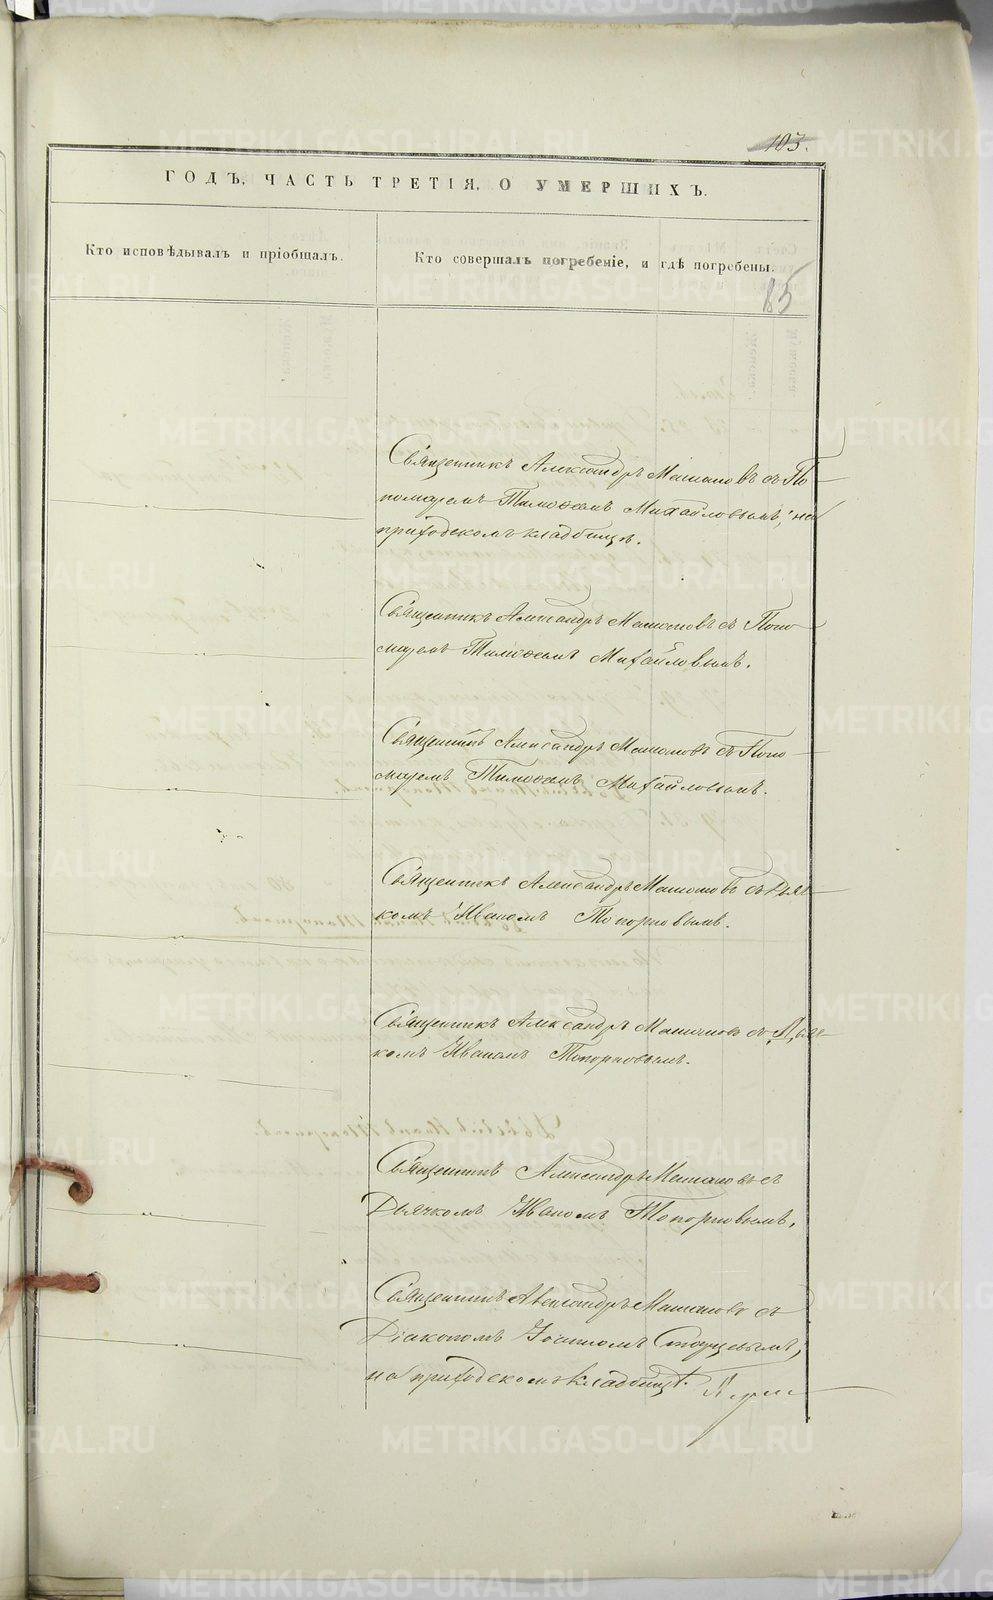 103.
ГОДЪ, ЧАСТЬ ТРЕТІЯ, О УМЕРШИХЪ.
Кто исповѣдывалъ и пріобщалъ.
Кто совершалъ погребеніе, и гдѣ погребены.
85
Священникъ Александръ Машановъ съ По
номаремъ Тимофеемъ Михайловымъ, на
приходскомъ кладбищѣ.
Священникъ Александръ Машановъ съ Поно
маремъ Тимофеемъ Михайловымъ.
Священникъ Александръ Машановъ съ Поно
маремъ Тимофеемъ Михайловымъ.
Священникъ Александръ Машановъ съ Дьяч
комъ Иваномъ Топорковымъ.
Священникъ Александръ Машановъ съ Дьяч
комъ Иваномъ Топорковымъ.
Священникъ Александръ Машановъ съ
Дьячкомъ Иваномъ Топорковымъ.
Священникъ Александръ Машановъ съ
Діакономъ
на приходскомъ кладбищѣ.
METRIKI.GASO-URAL.RU